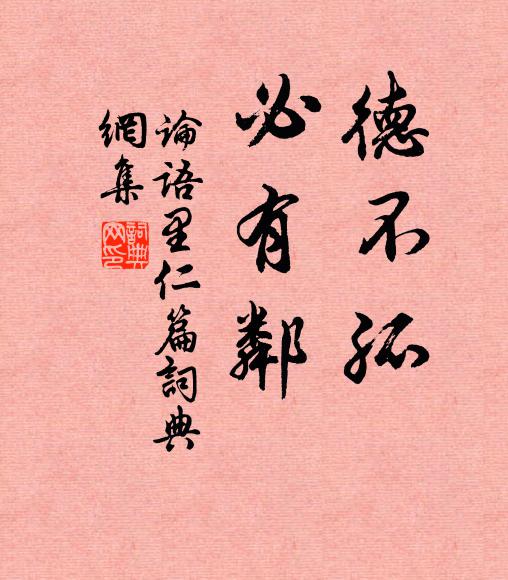 德不孤
必有鄰
論語里仁篇詞典
網集
詞典
网印